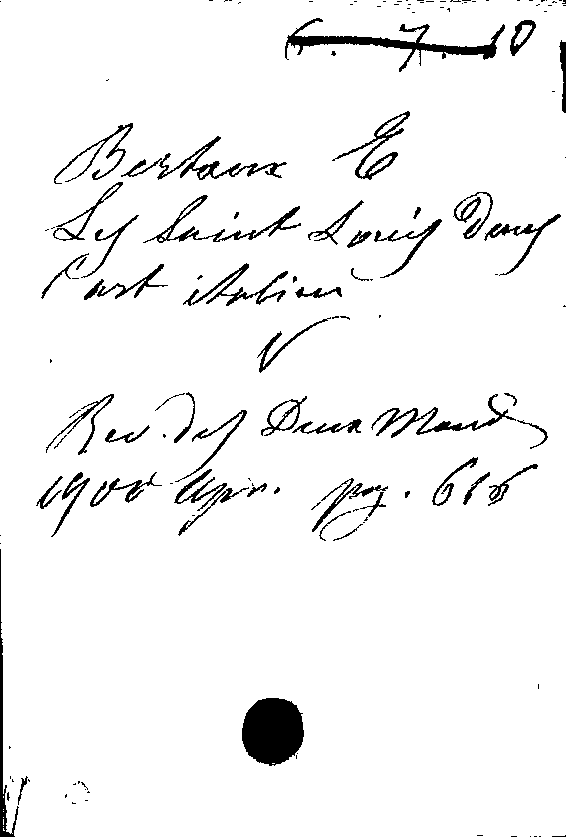 6. 7. 10
Bertaux E
Les Saint Louis dans
l'art italien
Rev. des Deux Mond
1900 Apr. pag. 616